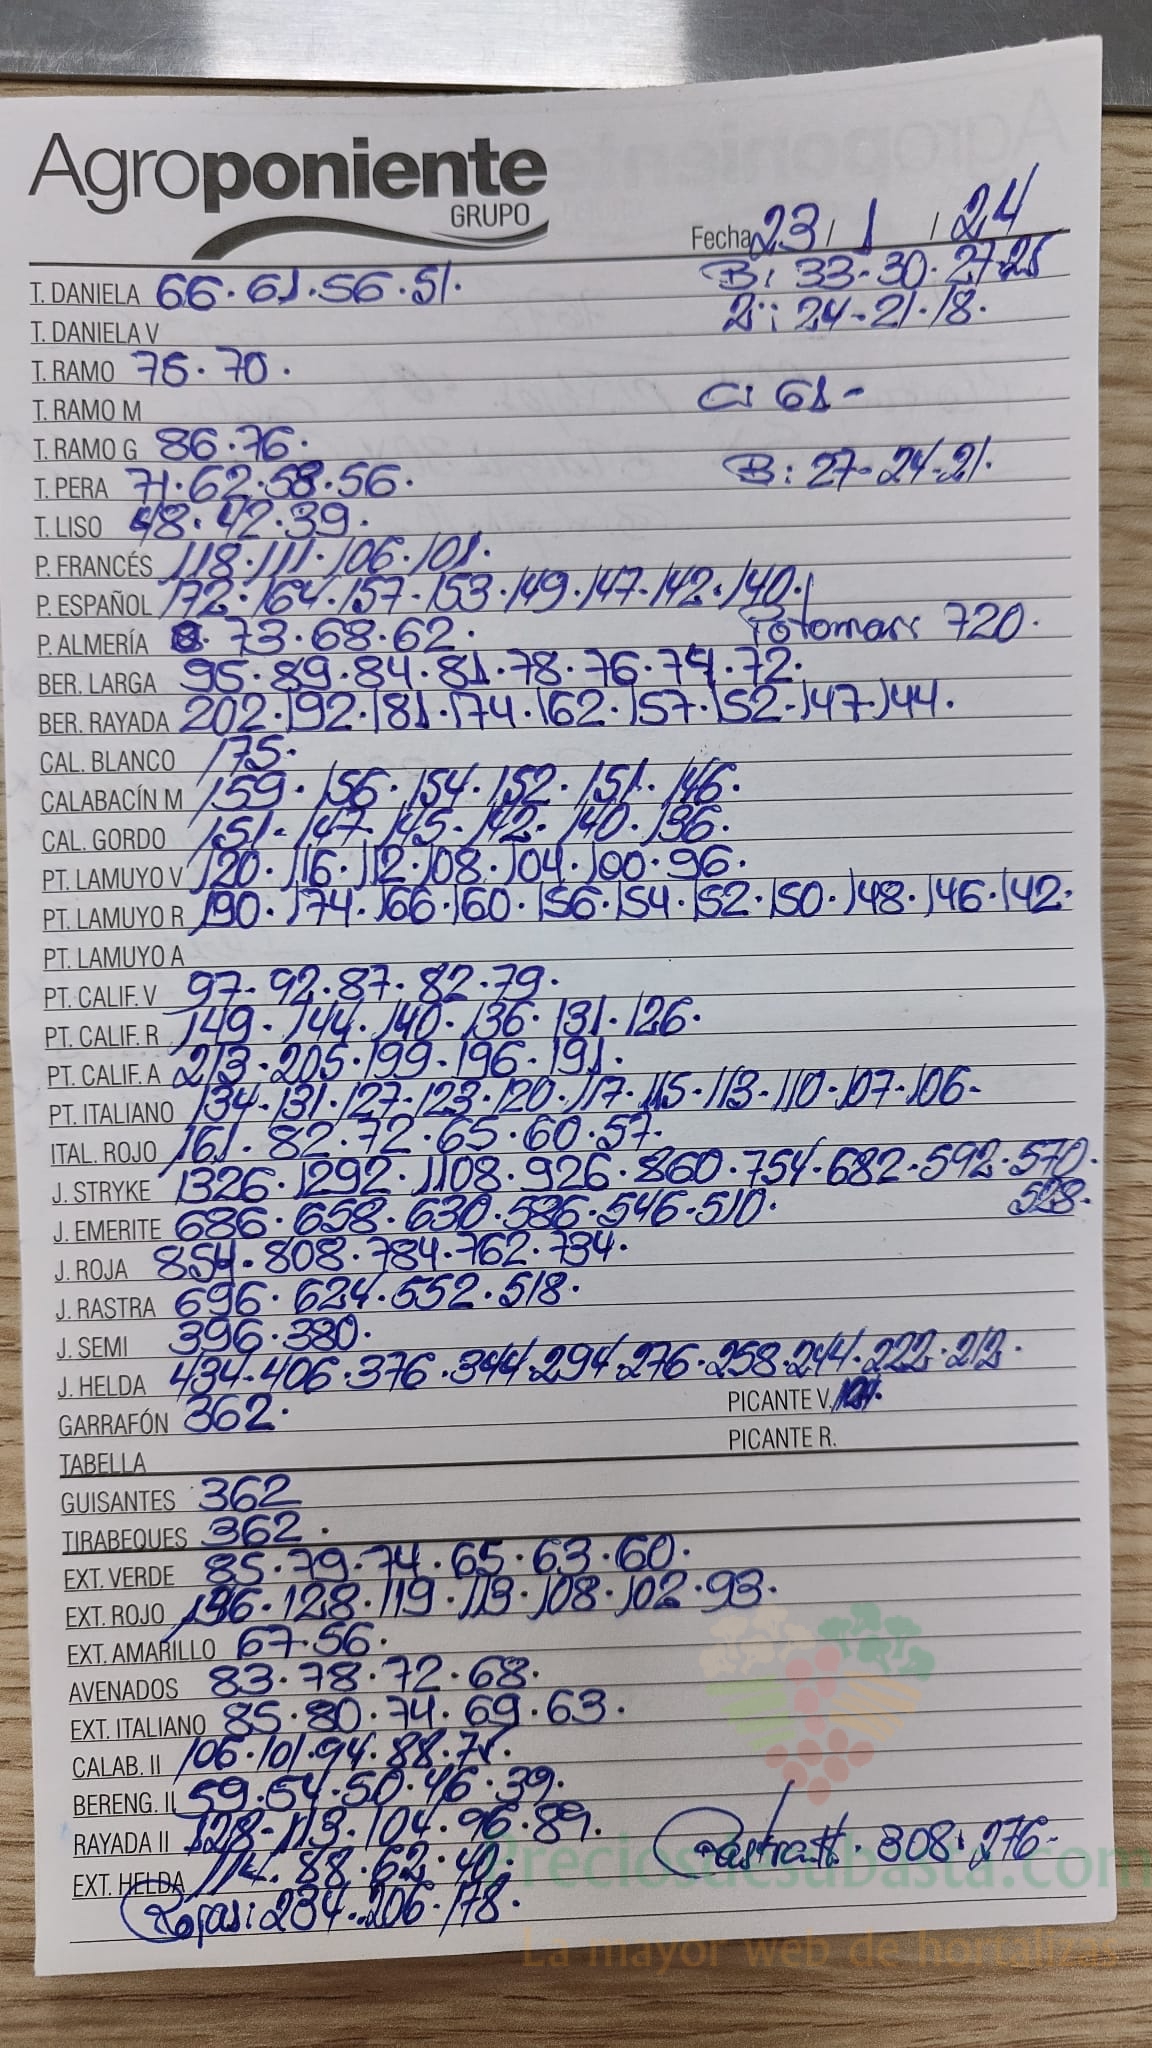 Agroponiente
GRUPO
Fecha 23 / 1 / 24
T. DANIELA 66. 61. 56. 51. B: 33-30. 27.25
T. DANIELA V 2ª: 24-21.18.
T. RAMO 75. 70.
T. RAMO M C: 61-
T. RAMO G 86. 76.
T. PERA 71. 62. 58. 56. B: 27-24-21.
T. LISO 48. 42. 39.
P. FRANCÉS 118. 111. 106. 101.
P. ESPAÑOL 172. 164. 157- 153. 149. 147. 142. 140.
P. ALMERÍA 73. 68. 62. 720.
BER. LARGA 95. 89. 84. 81. 78. 76. 74. 72.
BER. RAYADA 202. 192. 181. 174. 162. 157. 152. 147. 144.
CAL. BLANCO 175.
CALABACÍN M 159. 156. 154. 152. 151. 146.
CAL. GORDO 151- 147- 145- 142- 140. 136.
PT. LAMUYO V 120. 116. 112. 108. 104. 100. 96.
PT. LAMUYO R 190. 174. 166. 160. 156. 154. 152. 150. 148. 146. 142.
PT. LAMUYO A
PT. CALIF. V 97- 92. 87. 82. 79.
PT. CALIF. R 149. 144. 140. 136. 131. 126.
PT. CALIF. A 213. 205. 199- 196. 191.
PT. ITALIANO 134- 131. 127- 123. 120. 117. 115. 113- 110. 107- 106-
ITAL. ROJO 161. 82. 72. 65. 60. 57.
J. STRYKE 1326. 1292. 1108. 926. 860. 754. 682. 592. 570.
528.
J. EMERITE 686. 658. 630. 586. 546. 510.
J. ROJA 854. 808. 784. 762. 734.
J. RASTRA 696. 624. 552. 518.
J. SEMI 396. 380.
J. HELDA 434. 406. 376. 344. 294. 276. 258. 244. 222. 212.
GARRAFÓN 362. PICANTE V.
PICANTE R.
TABELLA
GUISANTES 362
TIRABEQUES 362.
EXT. VERDE 85. 79. 74. 65. 63. 60.
EXT. ROJO 136. 128. 119. 113. 108. 102. 93.
EXT. AMARILLO 67. 56.
AVENADOS 83. 78. 72. 68.
EXT. ITALIANO 85. 80. 74. 69. 63.
CALAB. II 106. 101. 94. 88.
BERENG. II 59. 54. 50. 46. 39.
RAYADA II 128- 113. 104. 96. 89.
EXT. HELDA 88. 62. 40. Rastra II. 308. 276-
Rojas: 234. 206. 178.
preciosdesubasta.com
La mayor web de hortalizas